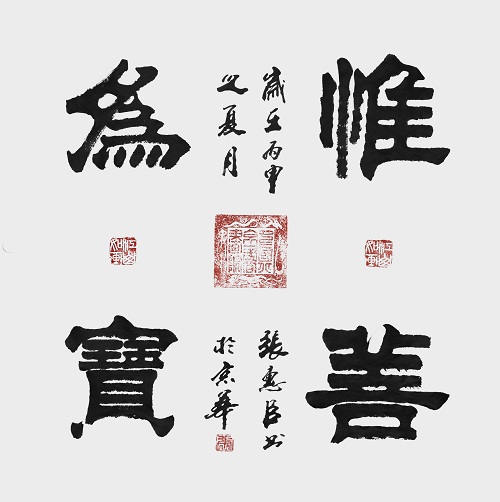 惟善
為寶
歲在丙申
之夏月
張惠臣書
於京華